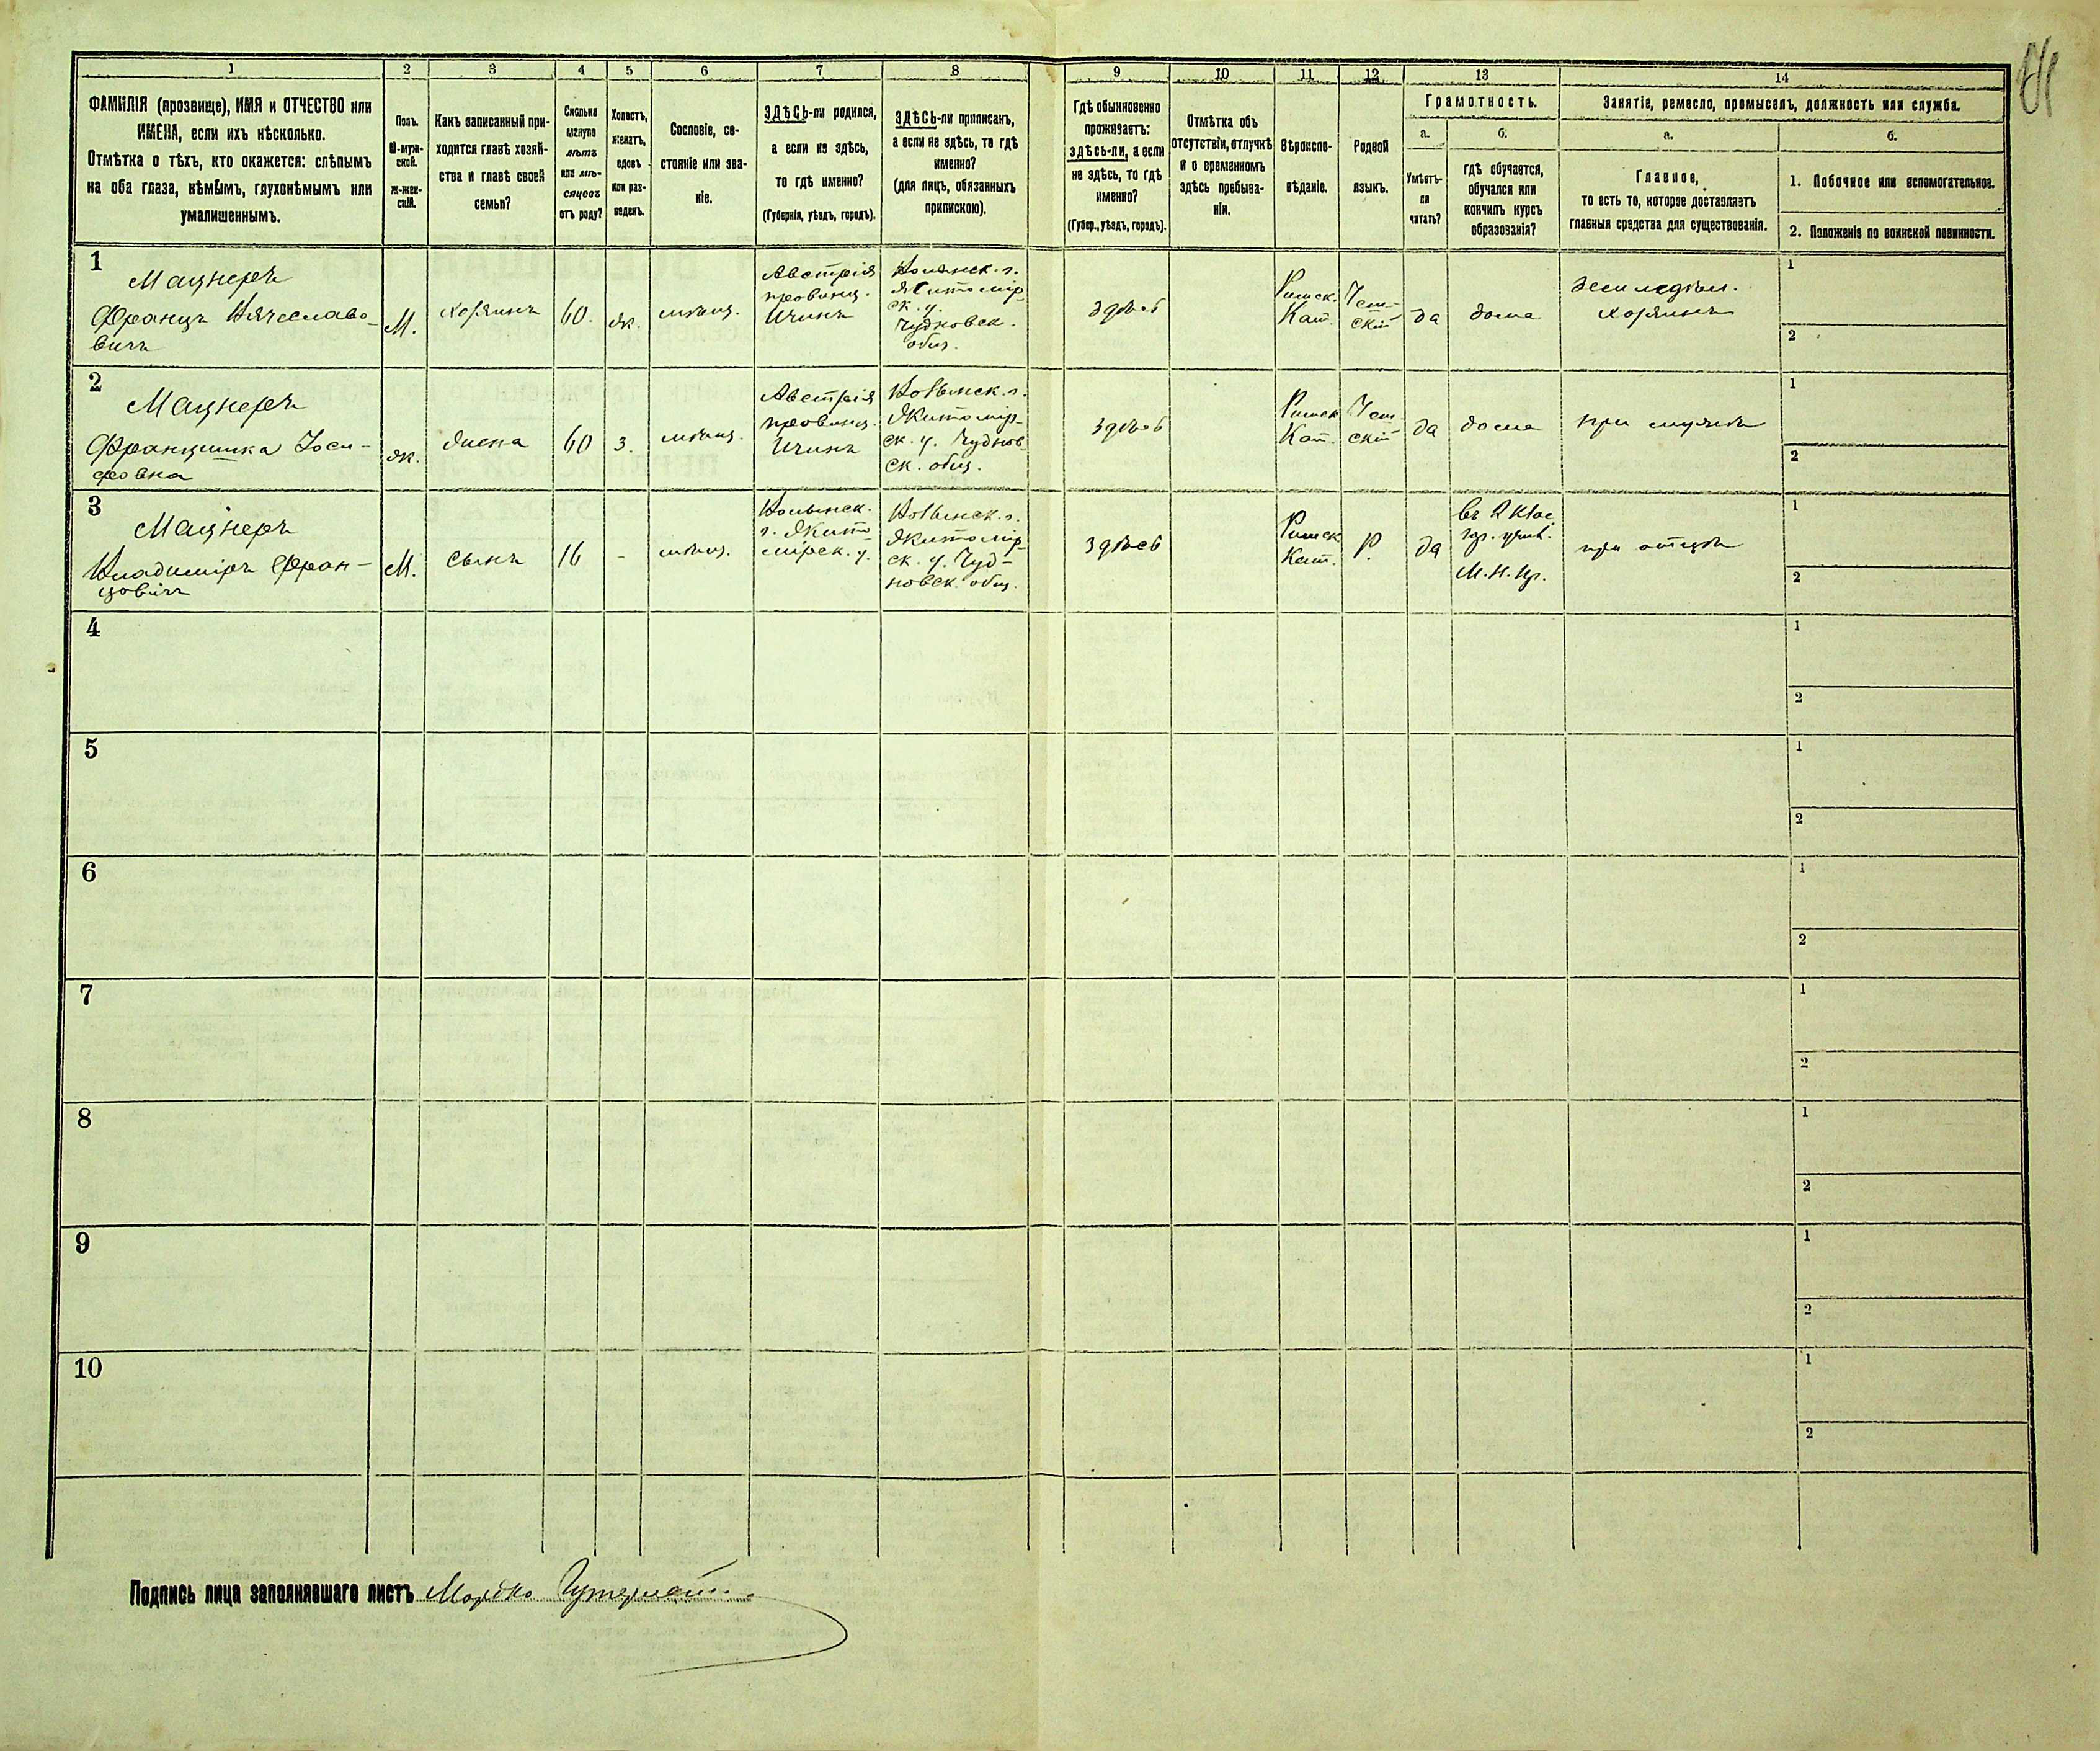 1 2 3 4 5 6 7 8 9 10 11 12 13 14
ФАМИЛІЯ (прозвище), ИМЯ и ОТЧЕСТВО или
ИМЕНА, если ихъ нѣсколько.
Отмѣтка о тѣхъ, кто окажется: слѣпымъ
на оба глаза, нѣмымъ, глухонѣмымъ или
умалишеннымъ.
Полъ.
М-муж-
ской.
Ж-жен-
скій.
Какъ записанный при-
ходится главѣ хозяй-
ства и главѣ своей
семьи?
Сколько
минуло
лѣтъ
или мѣ-
сяцевъ
отъ роду?
Холостъ,
женатъ,
вдовъ
или раз-
веденъ.
Сословіе, со-
стояніе или зва-
ніе.
ЗДѢСЬ-ли родился,
а если не здѣсь,
то гдѣ именно?
(Губернія, уѣздъ, городъ).
ЗДѢСЬ-ли приписанъ,
а если не здѣсь, то гдѣ
именно?
(для лицъ, обязанныхъ
припискою).
Гдѣ обыкновенно
проживаетъ:
здѣсь-ли, а если
не здѣсь, то гдѣ
именно?
(Губер., уѣздъ, городъ).
Отмѣтка объ
отсутствіи, отлучкѣ
и о временномъ
здѣсь пребыва-
ніи.
Вѣроиспо-
вѣданіе.
Родной
языкъ.
Грамотность.
а.
Умѣетъ-
ли
читать?
б.
гдѣ обучается,
обучался или
кончилъ курсъ
образованія?
Занятіе, ремесло, промыселъ, должность или служба.
а.
Главное,
то есть то, которое доставляетъ
главныя средства для существованія.
б.
1. Побочное или вспомогательное.
2. Положеніе по воинской повинности.
1
Мацнеръ
Францъ Вячеславо-
вичъ
М.
хозяинъ
60.
ж.
мѣщ.
Австрія
провинц.
Ичинъ
Волынск. г.
Житомір
ск. у.
Чудновск.
общ.
здѣсь
Римск.
Кат.
Чеш-
скій
да
дома
Земледѣл.
хозяинъ
1
2
2
Мацнеръ
Францишка Іоси-
фовна
ж.
жена
60
з.
мѣщ.
Австрія
провинц.
Ичинъ
Волынск. г.
Житомір-
ск. у. Чуднов
ск. общ.
здѣсь
Римск
Кат.
Чеш-
скій
да
дома
при мужѣ
1
2
3
Мацнеръ
Владиміръ Фран-
цовичъ
М.
сынъ
16
-
мѣщ.
Волынск.
г. Жито-
мірск. у.
Волынск. г.
Житомір-
ск. у. Чуд-
новск. общ.
здѣсь
Римск
Кат.
Р.
да
въ 2 клас
гор. учил.
М. Н. Пр.
при отцѣ
1
2
4
1
2
5
1
2
6
1
2
7
1
2
8
1
2
9
1
2
10
1
2
Подпись лица заполнявшаго листъ